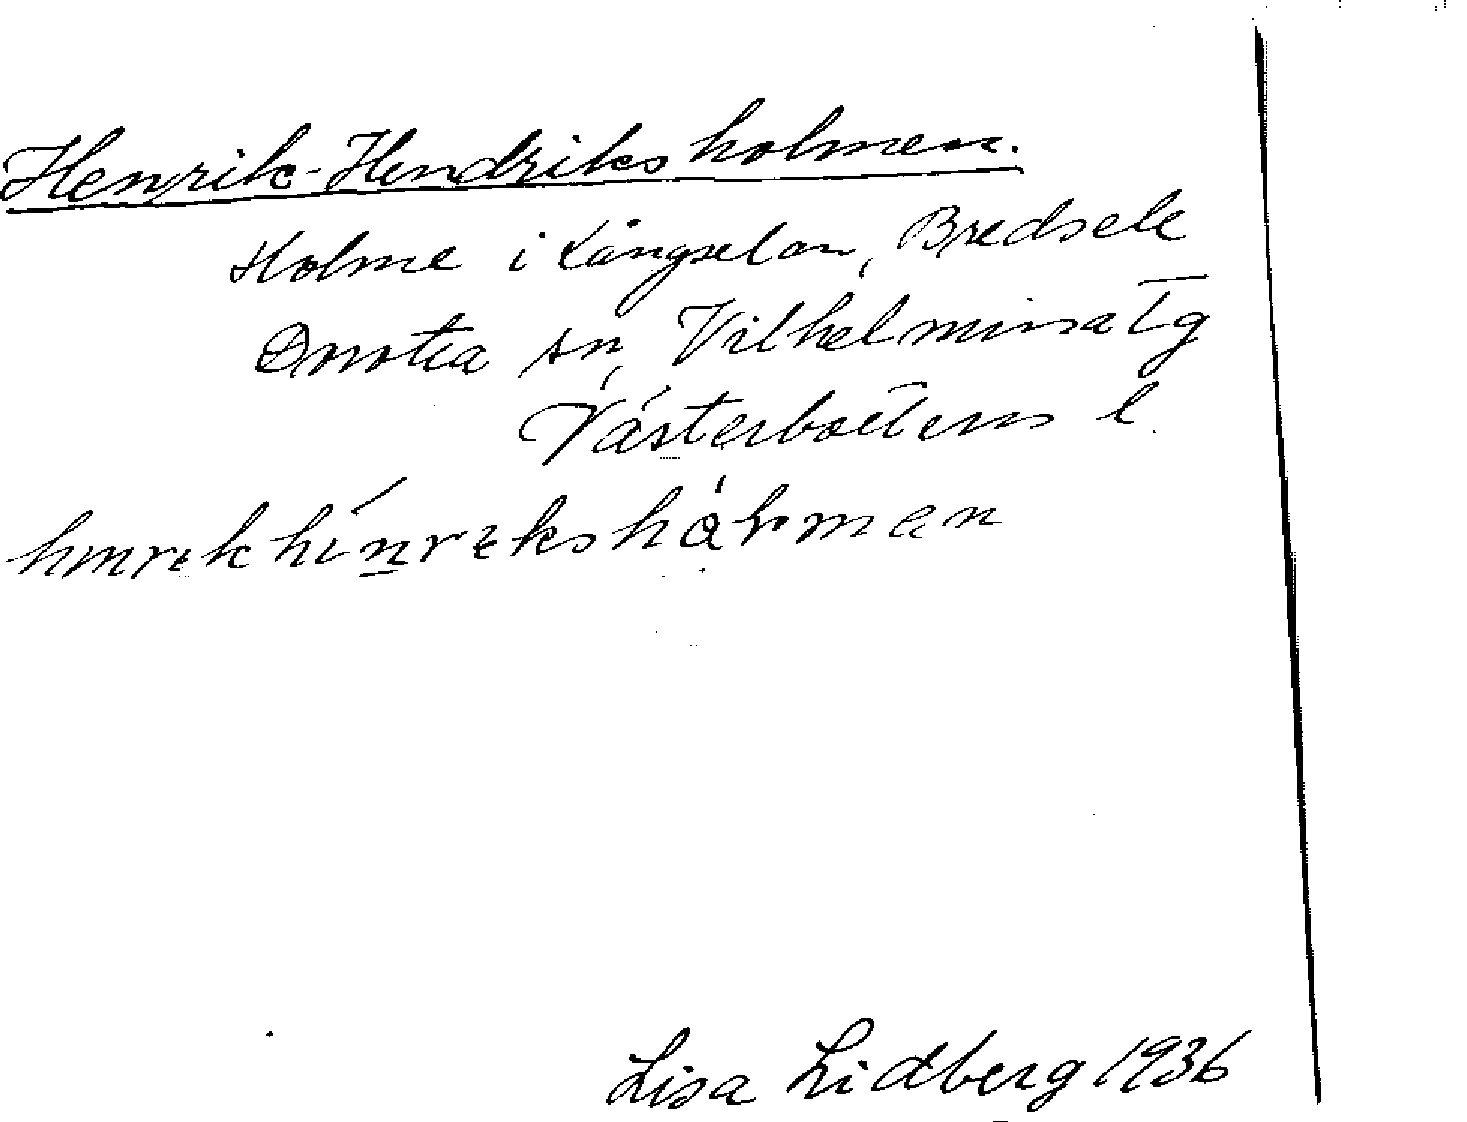 Henrik-Hendriksholmen.
Holme i Långselån, Bredsele
Dorotea sn, Vilhelmina tg
Västerbottens l.
hinrik hinrikshålman
Lisa Lidberg 1936